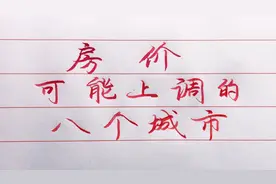 房价
可能上调的
八个城市